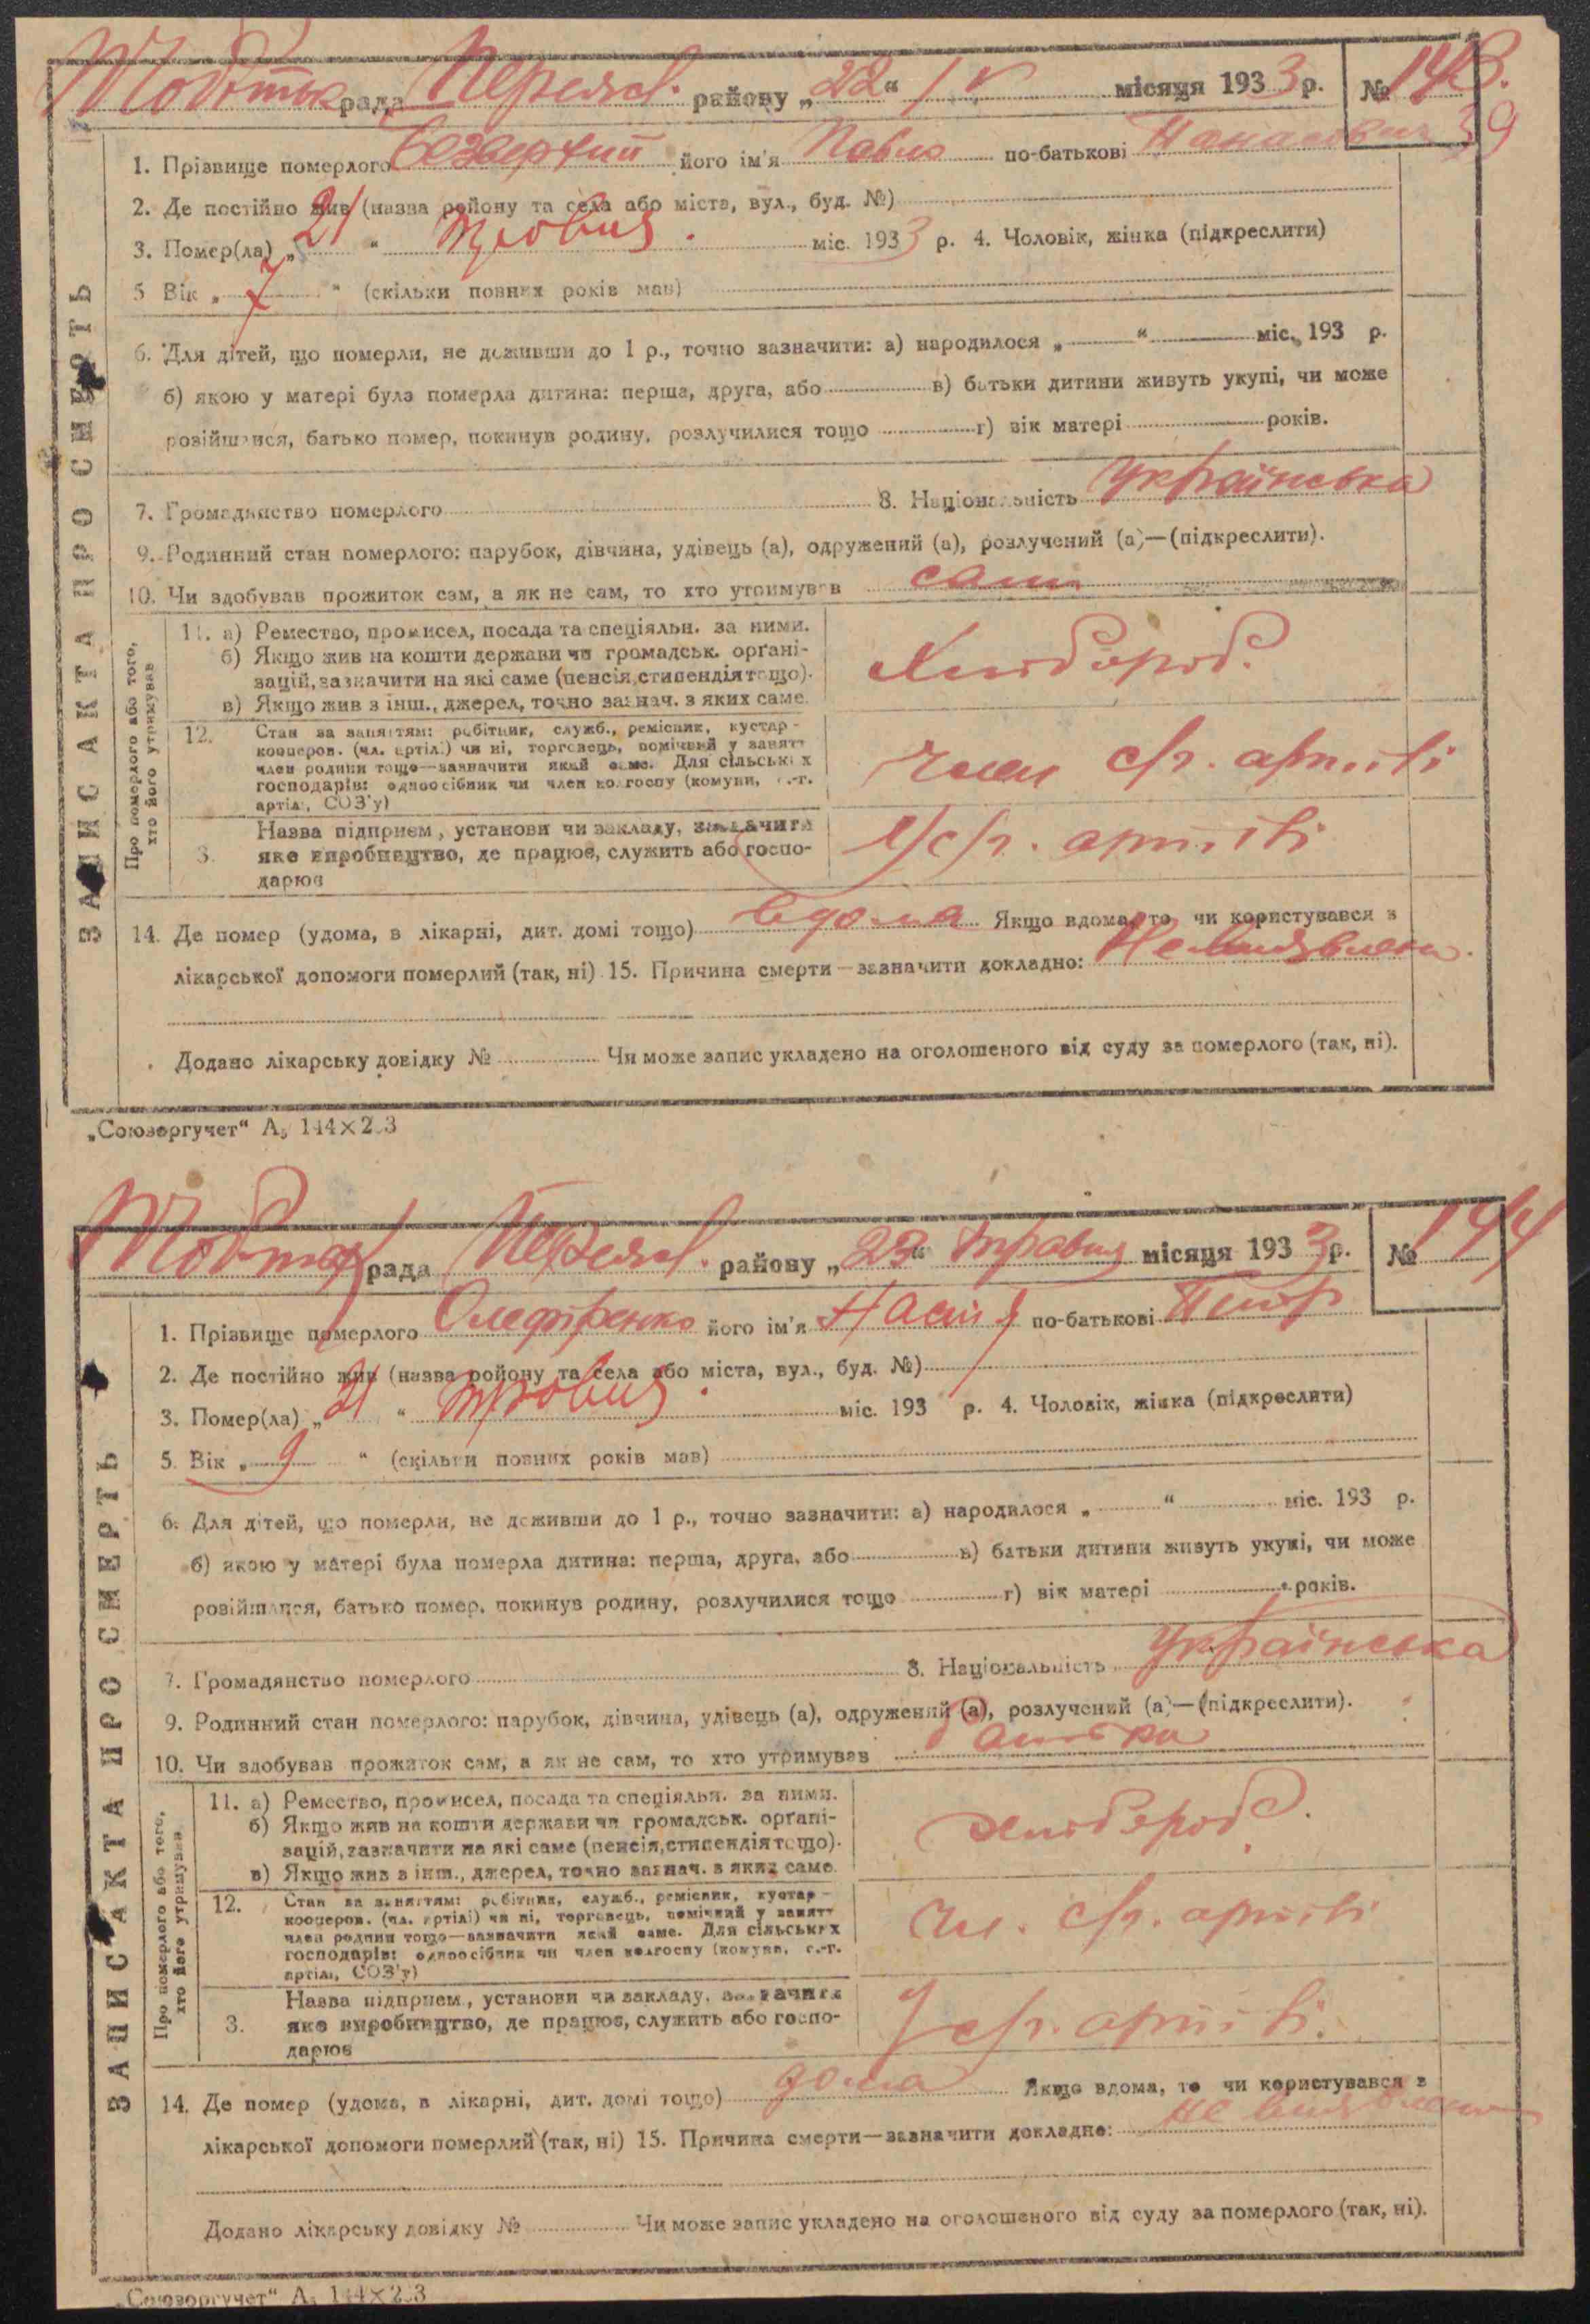 рада Переясл. району „22“ IV місяця 1933 р. № 143.
39
1. Прізвище померлого Безверхий його ім'я Павло по-батькові Панасович
2. Де постійно жив (назва району та села або міста, вул., буд. №)
3. Помер(ла) „21“ травня. міс. 1933 р. 4. Чоловік, жінка (підкреслити)
5 Вік „7“ (скільки повних років мав)
6. Для дітей, що померли, не доживши до 1 р., точно зазначити: а) народилося „ “ міс. 193 р.
б) якою у матері була померла дитина: перша, друга, або в) батьки дитини живуть укупі, чи може
розійшлися, батько помер, покинув родину, розлучилися тощо г) вік матері років.
7. Громадянство померлого 8. Національність українська
9. Родинний стан померлого: парубок, дівчина, удівець (а), одружений (а), розлучений (а)—(підкреслити).
10. Чи здобував прожиток сам, а як не сам, то хто утримував сам
ЗАПИС АКТА ПРО СМЕРТЬ
Про померлого або того, хто його утримував
11. а) Ремество, промисел, посада та спеціяльн. за ними.
б) Якщо жив на кошти держави чи громадськ. органі-
зацій, зазначити на які саме (пенсія, стипендія тощо).
в) Якщо жив з інш., джерел, точно зазнач. з яких саме.
Хлібороб.
12. Стан за заняттям: робітник, служб., ремісник, кустар-
кооперов. (чл. артілі) чи ні, торговець, помічний у занятт
член родини тощо—зазначити який саме. Для сільських
господарів: одноосібник чи член колгоспу (комуни, с.-г.
артілі, СОЗ'у)
член с/г. артілі
3. Назва підприєм., установи чи закладу, зазначити
яке виробництво, де працює, служить або госпо-
дарює
У с/г. артілі
14. Де помер (удома, в лікарні, дит. домі тощо) вдома Якщо вдома, то чи користувався з
лікарської допомоги померлий (так, ні) 15. Причина смерти—зазначити докладно: Не виявлено.
Додано лікарську довідку № Чи може запис укладено на оголошеного від суду за померлого (так, ні).
„Союзоргучет“ А5 144×203
рада Переясл. району „22“ травня місяця 1933 р. № 144
1. Прізвище померлого Олефіренко його ім'я Настя по-батькові Петр
2. Де постійно жив (назва району та села або міста, вул., буд. №)
3. Помер(ла) „21“ травня. міс. 193 р. 4. Чоловік, жінка (підкреслити)
5. Вік „9“ (скільки повних років мав)
6. Для дітей, що померли, не доживши до 1 р., точно зазначити: а) народилося „ “ міс. 193 р.
б) якою у матері була померла дитина: перша, друга, або в) батьки дитини живуть укупі, чи може
розійшлися, батько помер, покинув родину, розлучилися тощо г) вік матері років.
7. Громадянство померлого 8. Національність українська
9. Родинний стан померлого: парубок, дівчина, удівець (а), одружений (а), розлучений (а)—(підкреслити).
10. Чи здобував прожиток сам, а як не сам, то хто утримував батько
ЗАПИС АКТА ПРО СМЕРТЬ
Про померлого або того, хто його утримував
11. а) Ремество, промисел, посада та спеціяльн. за ними.
б) Якщо жив на кошти держави чи громадськ. органі-
зацій, зазначити на які саме (пенсія, стипендія тощо).
в) Якщо жив з інш., джерел, точно зазнач. з яких саме.
хлібороб.
12. Стан за заняттям: робітник, служб., ремісник, кустар-
кооперов. (чл. артілі) чи ні, торговець, помічний у занятт
член родини тощо—зазначити який саме. Для сільських
господарів: одноосібник чи член колгоспу (комуни, с.-г.
артілі, СОЗ'у)
чл. с/г. артілі
3. Назва підприєм., установи чи закладу, зазначити
яке виробництво, де працює, служить або госпо-
дарює
У с/г. артілі.
14. Де помер (удома, в лікарні, дит. домі тощо) дома Якщо вдома, то чи користувався з
лікарської допомоги померлий (так, ні) 15. Причина смерти—зазначити докладно: не виявлено
Додано лікарську довідку № Чи може запис укладено на оголошеного від суду за померлого (так, ні).
„Союзоргучет“ А5 144×203